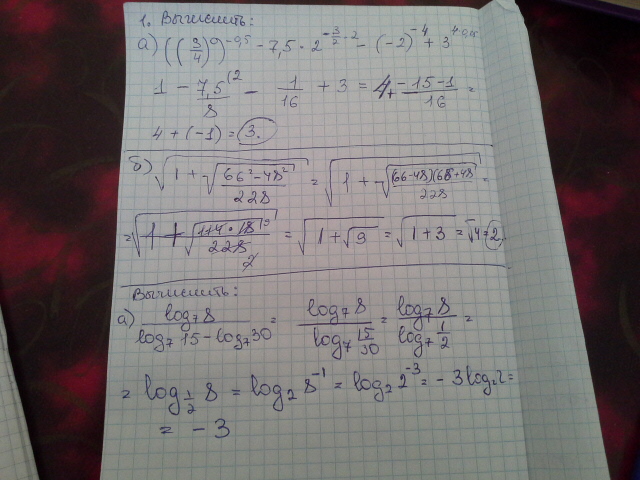 1. Вычислить:
а) ((3/4)^0)^-0,5 - 7,5 · 2^(-3/2 · 2) - (-2)^-4 + 3^(4·0,25)
1 - 7,5^(2 / 8 - 1/16 + 3 = 4 + (-15-1)/16 =
4 + (-1) = 3.
б) √(1 + √((66² - 48²)/228)) = √(1 + √((66-48)(66+48)/228)) =
= √(1 + √(114 · 18^9/228 2)) = √(1 + √9) = √(1+3) = √4 = 2.
Вычислить:
а) log₇8 / (log₇15 - log₇30) = log₇8 / log₇ 15/30 = log₇8 / log₇ 1/2 =
= log_(1/2) 8 = log₂ 8^-1 = log₂ 2^-3 = -3 log₂2 =
= -3